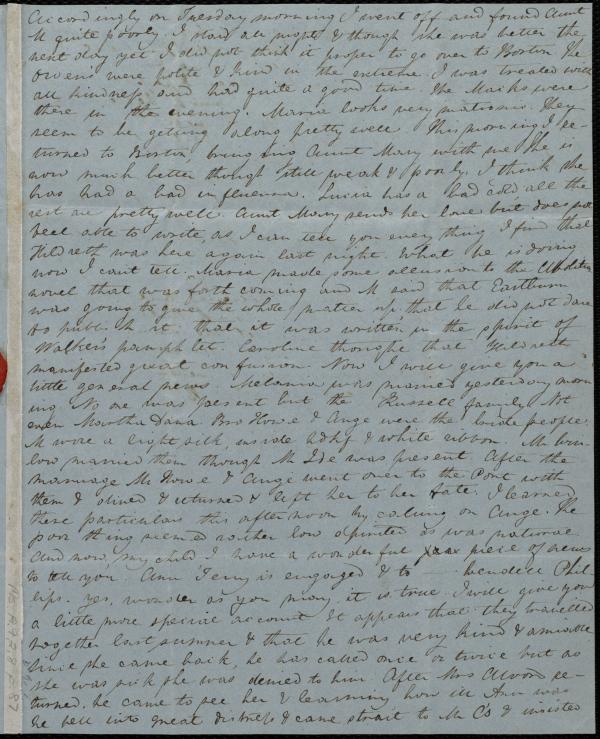 Accordingly on Tuesday morning I went off and found Aunt
M quite poorly I staid all night & though she was better the
next day yet I did not think it proper to go over to Boston The
Owens were polite & kind in the extreme. I was treated with
all kindness and had quite a good time. The Macks were
there in the evening. Maria looks very matronic They
seem to be getting along pretty well This morning I re-
turned to Boston, bringing Aunt Mary with me She is
now much better though still weak & poorly. I think she
has had a bad influenza. Lucia has a bad cold all the
rest are pretty well. Aunt Mary sends her love but does not
feel able to write, as I can tell you every thing I find that
Hildreth was here again last night. What he is doing
now I cant tell. Maria made some allusion to the Abolition
novel that was forth coming and M said that Eastburn
was going to give the whole matter up, that he did not dare
to publish it, that it was written in the spirit of
Walker's pamphlet. Caroline thought that Hildreth
manifested great confusion. Now I will give you a
little general news. Melania was married yesterday morn
ing No one was present but the Russell family Not
even Martha Dana Bro Howe & Ange were the bride people.
M wore a light silk, inside hdkf & white ribbon. Mr Win-
low married them though Mr Ide was present After the
marriage Mr Howe & Ange went over to the Pont with
them & dined & returned & left her to her fate. I learned
these particulars this afternoon by calling on Ange. The
poor thing seemed rather low spirited as was natural
And now, my child I have a wonderful piece of news
to tell you. Ann Terry is engaged & to Wendell Phil-
lips. Yes, wonder as you may, it is true I will give you
a little more special account It appears that they travelled
together last summer & that he was very kind & amiable
Since she came back, he has called once or twice but as
she was sick she was denied to him. After Mrs Alvord re-
turned, he came to see her & learning how ill Ann was
he fell into great distress & came strait to Mr C's & insisted